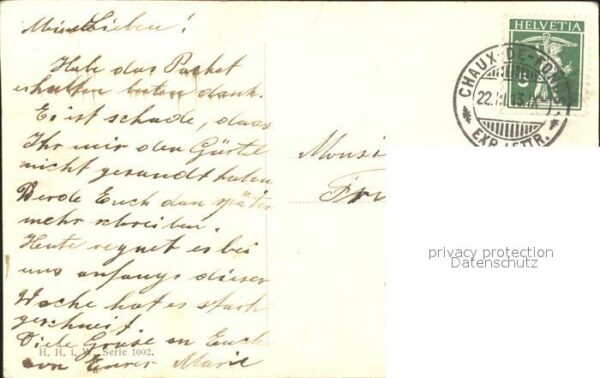 Meine Lieben!
Habe das Packet
erhalten besten dank.
Es ist schade, dass
Ihr mir den Gürtel
nicht gesandt haben
Werde Euch dan später
mehr schreiben.
Heute regnet es bei
uns anfangs dieser
Woche hat es stark
geschneit.
Viele Grüsse an Euch
von Eurer Marie
H. H. i. W. Serie 1002.
Monsi
Fri
HELVETIA
5
CHAUX-DE-FONDS
22.
13.
EXP. LETTR.
privacy protection
Datenschutz